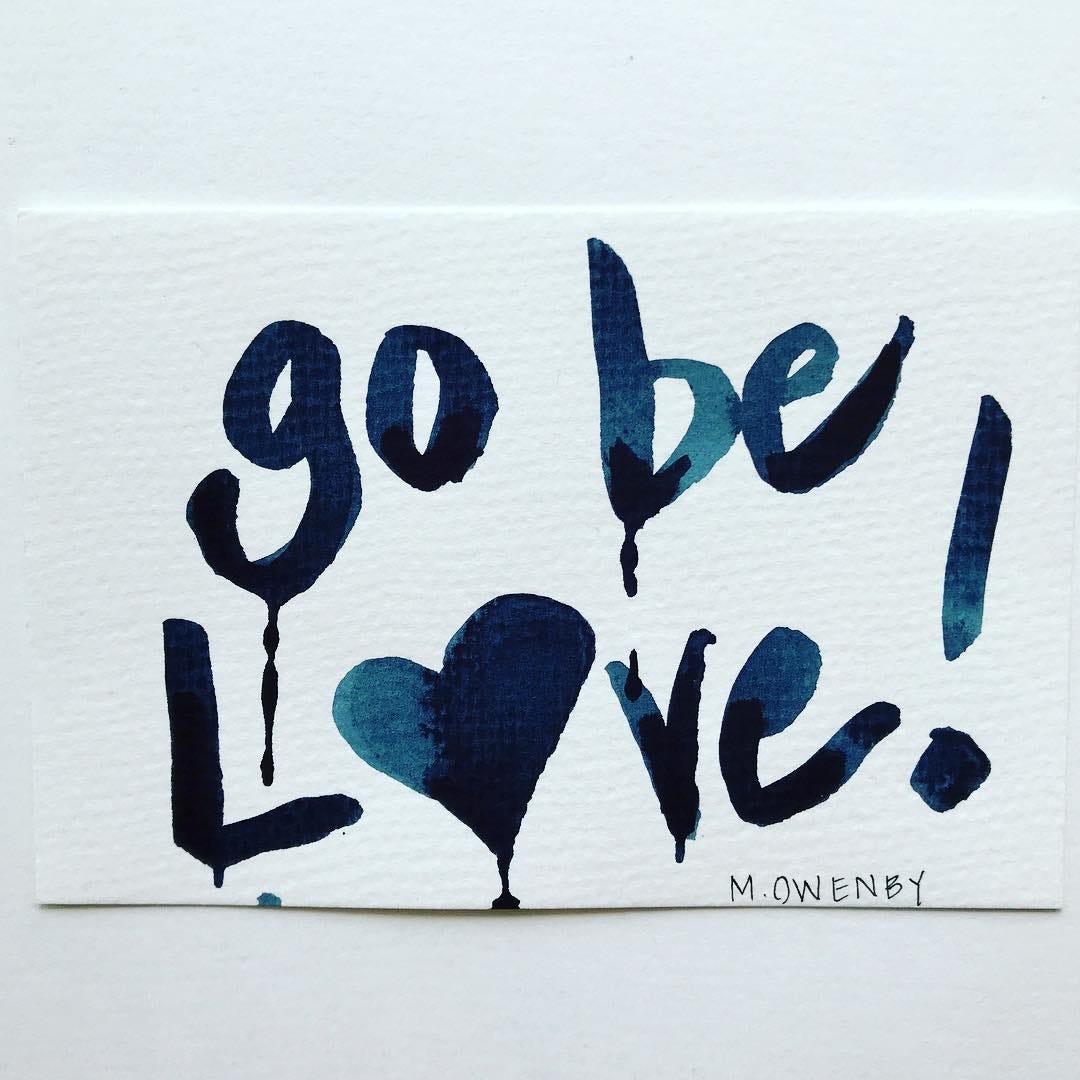 go be
L♥ve!
M. OWENBY